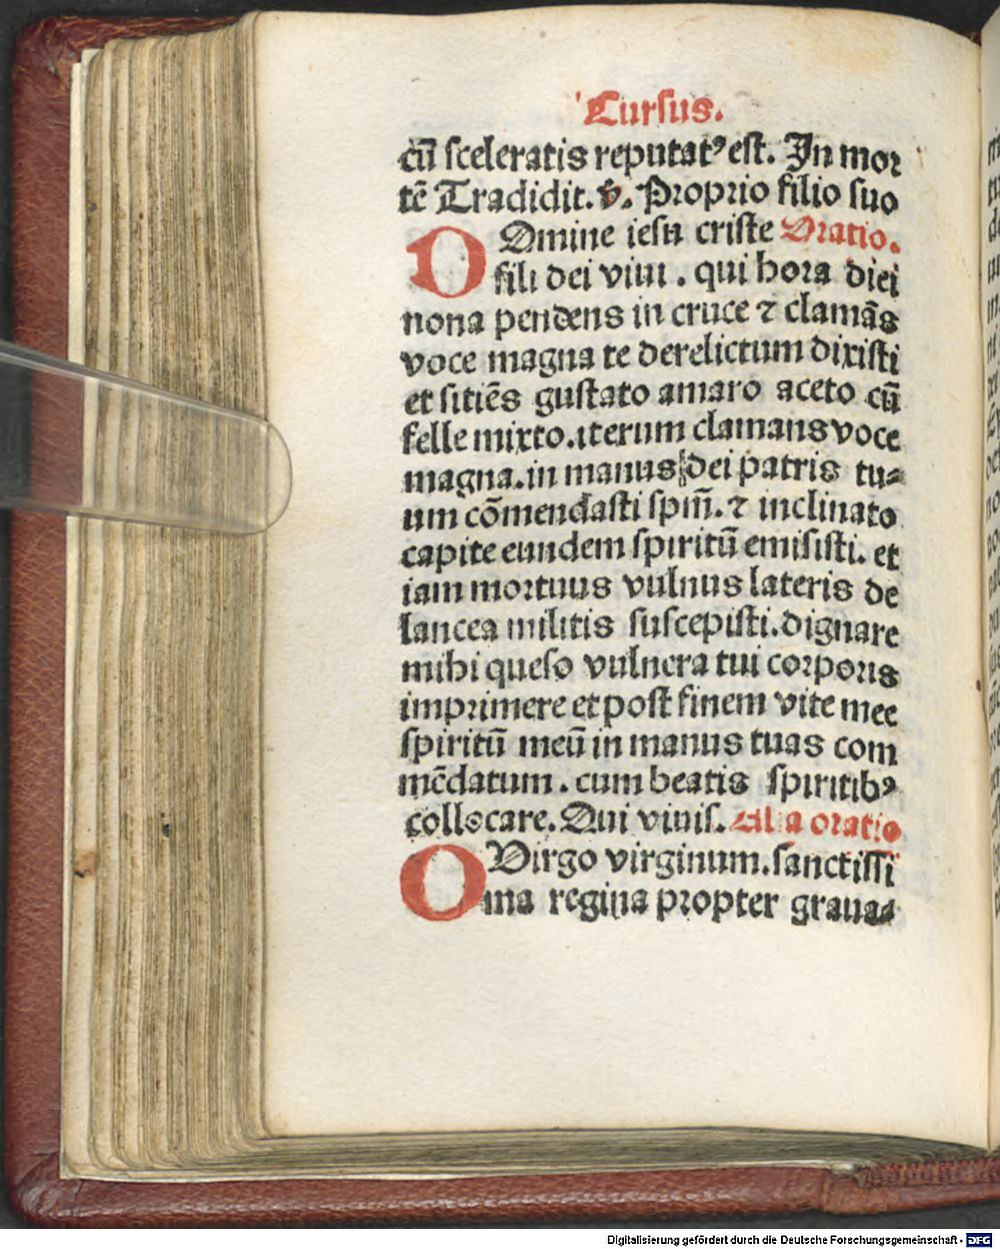 Cursus.
cū sceleratis reputatꝰ est. In mor
tē Tradidit. ℣. Proprio filio suo
O Dmine iesu criste Oratio.
fili dei viui . qui hora diei
nona pendens in cruce ⁊ clamās
voce magna te derelictum dixisti
et sitiēs gustato amaro aceto cū
felle mixto.iterum clamans voce
magna.in manus dei patris tu⸗
um cōmendasti spm̄. ⁊ inclinato
capite eundem spiritū emisisti. et
iam mortuus vulnus lateris de
lancea militis suscepisti.dignare
mihi queso vulnera tui corporis
imprimere et post finem vite mee
spiritū meū in manus tuas com
mēdatum . cum beatis spiritibꝰ
collocare. Qui viuis. Alia oratio
O Virgo virginum.sanctissi
ma regina propter grauas
Digitalisierung gefördert durch die Deutsche Forschungsgemeinschaft - DFG